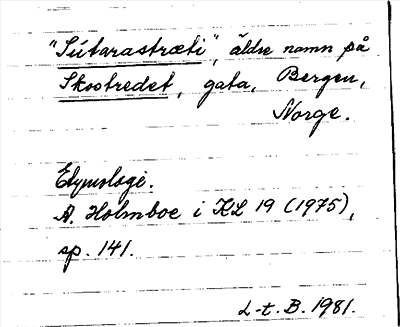 "Sútarastræti", äldre namn på
Skostredet, gata, Bergen,
Norge.
Etymologi.
A. Holmboe i KL 19 (1975),
sp. 141.
L-t. B. 1981.